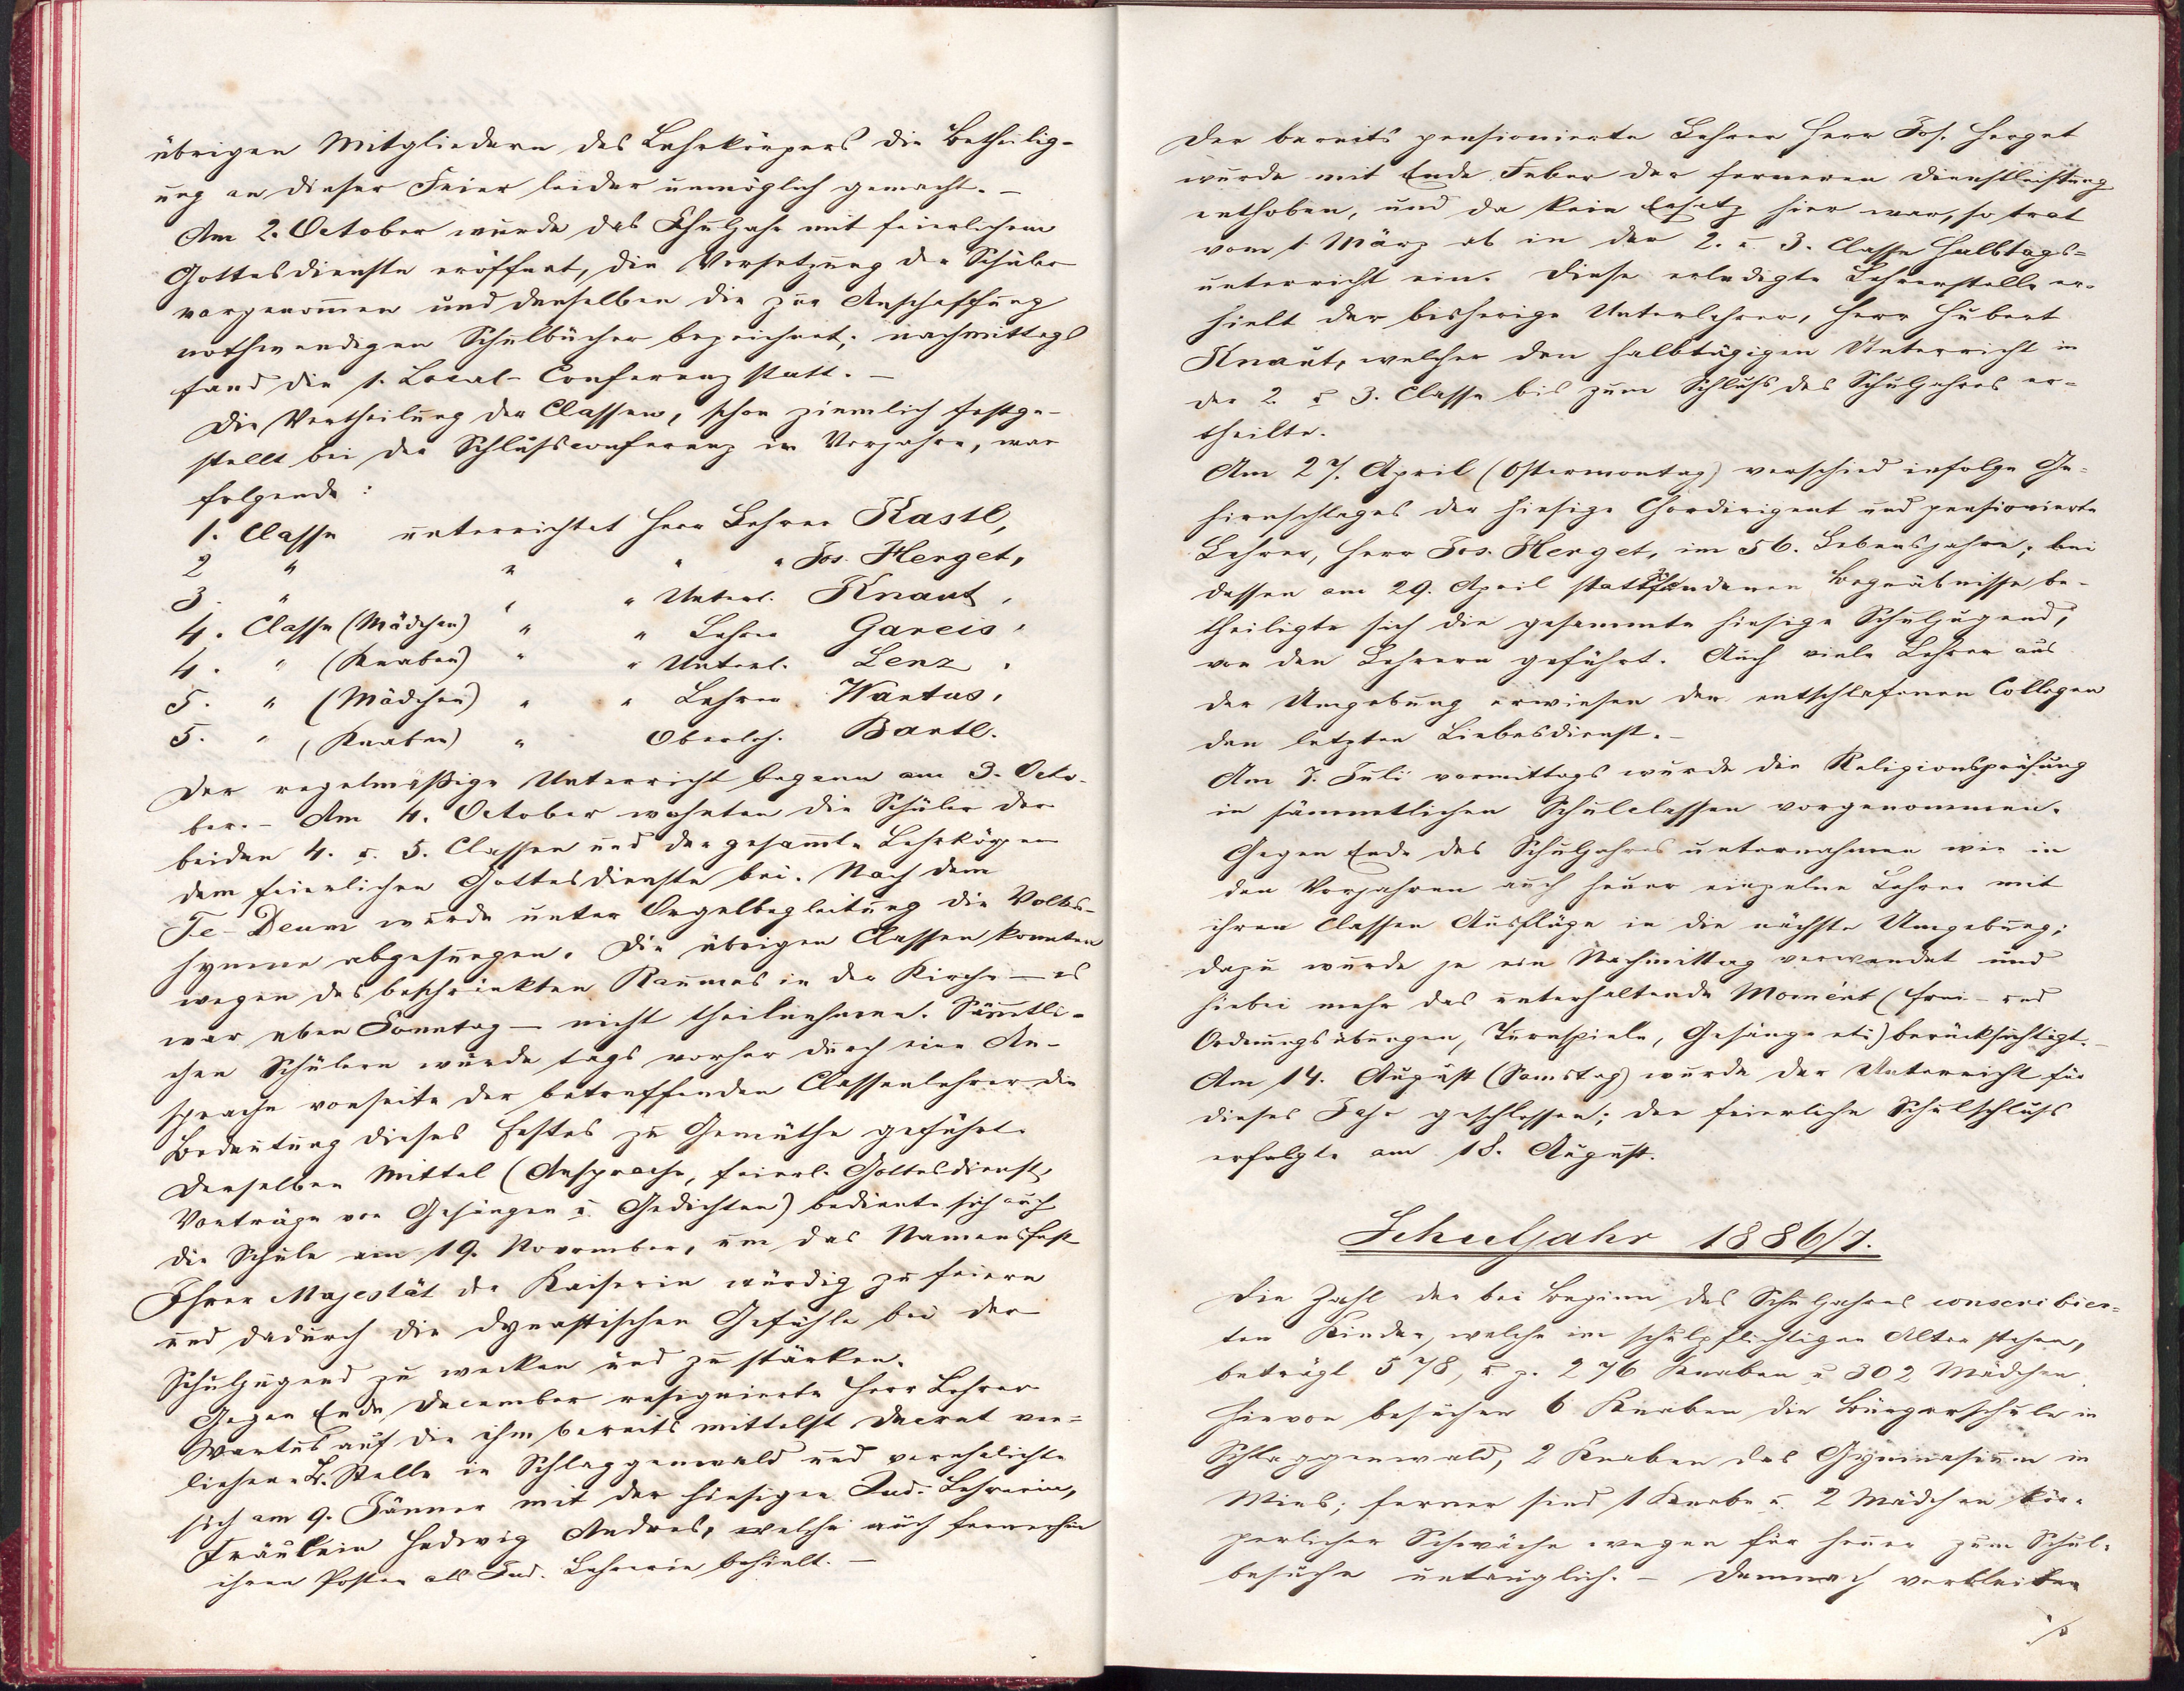 übrigen Mitgliedern des Lehrkörpers die Betheilig-
ung an dieser Feier leider unmöglich gemacht. –
Am 2. October wurde das Schuljahr mit feierlichem
Gottesdienste eröffnet, die Versetzung der Schüler
vorgenommen und denselben die zur Anschaffung
nothwendigen Schulbücher bezeichnet; nachmittags
fand die 1. Local-Conferenz statt. –
Die Vertheilung der Classen, schon ziemlich festge-
stellt bei der Schlußconferenz im Vorjahre, war
folgende:
1. Classe unterrichtet Herr Lehrer Kastl,
2 " " " " Jos. Herget,
3. " " " Unterl. Knaut,
4. Classe (Mädchen) " " Lehrer Gareis,
4. " (Knaben) " " Unterl. Lenz,
5. " (Mädchen) " " Lehrer Wartus,
5. " (Knaben) " Oberleh. Bartl.
Der regelmäßige Unterricht begann am 3. Octo-
ber. – Am 4. October wohnten die Schüler der
beiden 4. u. 5. Classen und der gesammte Lehrkörper
dem feierlichen Gottesdienste bei. Nach dem
Te-Deum wurde unter Orgelbegleitung die Volks-
hymne abgesungen. Die übrigen Classen konnten
wegen des beschränkten Raumes in der Kirche – es
war eben Sonntag – nicht theilnehmen. Sämtli-
chen Schülern wurde tags vorher durch eine An-
sprache vonseite der betreffenden Classenlehrer die
Bedeutung dieses Festes zu Gemüthe geführt.
Derselben Mittel (Ansprache, feierl. Gottesdienst,
Vorträge von Gesängen u. Gedichten) bediente sich auch
die Schule am 19. November, um das Namensfest
Ihrer Majestät der Kaiserin würdig zu feiern
und dadurch die dynastischen Gefühle bei der
Schuljugend zu wecken und zu stärken.
Gegen Ende December resignierte Herr Lehrer
Wartus auf die ihm bereits mittelst Decret ver-
liehene L. Stelle in Schlaggenwald und verehelichte
sich am 9. Jänner mit der hiesigen Ind. Lehrerin,
Fräulein Hedwig Andres, welche auch fernerhin
ihren Posten als Ind. Lehrerin behielt. –
Der bereits pensionierte Lehrer Herr Jos. Herget
wurde mit Ende Feber der ferneren Dienstleistung
enthoben, und da kein Ersatz hier war, so trat
vom 1. März ab in der 2. u. 3. Classe Halbtags-
unterricht ein. Diese erledigte Lehrerstelle er-
hielt der bisherige Unterlehrer, Herr Hubert
Knaut, welcher den halbtägigen Unterricht in
der 2. u. 3. Classe bis zum Schluß des Schuljahres er-
theilte.
Am 27. April (Ostermontag) verschied infolge Ge-
hirnschlages der hiesige Chordirigent und pensionierte
Lehrer, Herr Jos. Herget, im 56. Lebensjahre; bei
dessen am 29. April stattfundenen Begräbnisse be-
theiligte sich die gesammte hiesige Schuljugend,
von den Lehrern geführt. Auch viele Lehrer aus
der Umgebung erwiesen dem entschlafenen Collegen
den letzten Liebesdienst. –
Am 7. Juli vormittags wurde die Religionsprüfung
in sämmtlichen Schulclassen vorgenommen.
Gegen Ende des Schuljahres unternahmen wie in
den Vorjahren auch heuer einzelne Lehrer mit
ihren Classen Ausflüge in die nächste Umgebung;
dazu wurde je ein Nachmittag verwendet und
hiebei mehr das unterhaltende Moment (Frei- und
Ordnungsübungen, Turnspiele, Gesänge etc) berücksichtigt. –
Am 14. August (Samstag) wurde der Unterricht für
dieses Jahr geschlossen; der feierliche Schulschluß
erfolgte am 18. August.
Schuljahr 1886/7.
Die Zahl der bei Beginn des Schuljahres conscribier-
ten Kinder, welche im schulpflichtigen Alter stehen,
beträgt 578, u. z. 276 Knaben u 302 Mädchen.
Hievon besuchen 6 Knaben die Bürgerschule in
Schlaggenwald, 2 Knaben das Gymnasium in
Mies; ferner sind 1 Knabe u. 2 Mädchen kör-
perlicher Schwäche wegen für heuer zum Schul-
besuche untauglich. – Demnach verbleiben